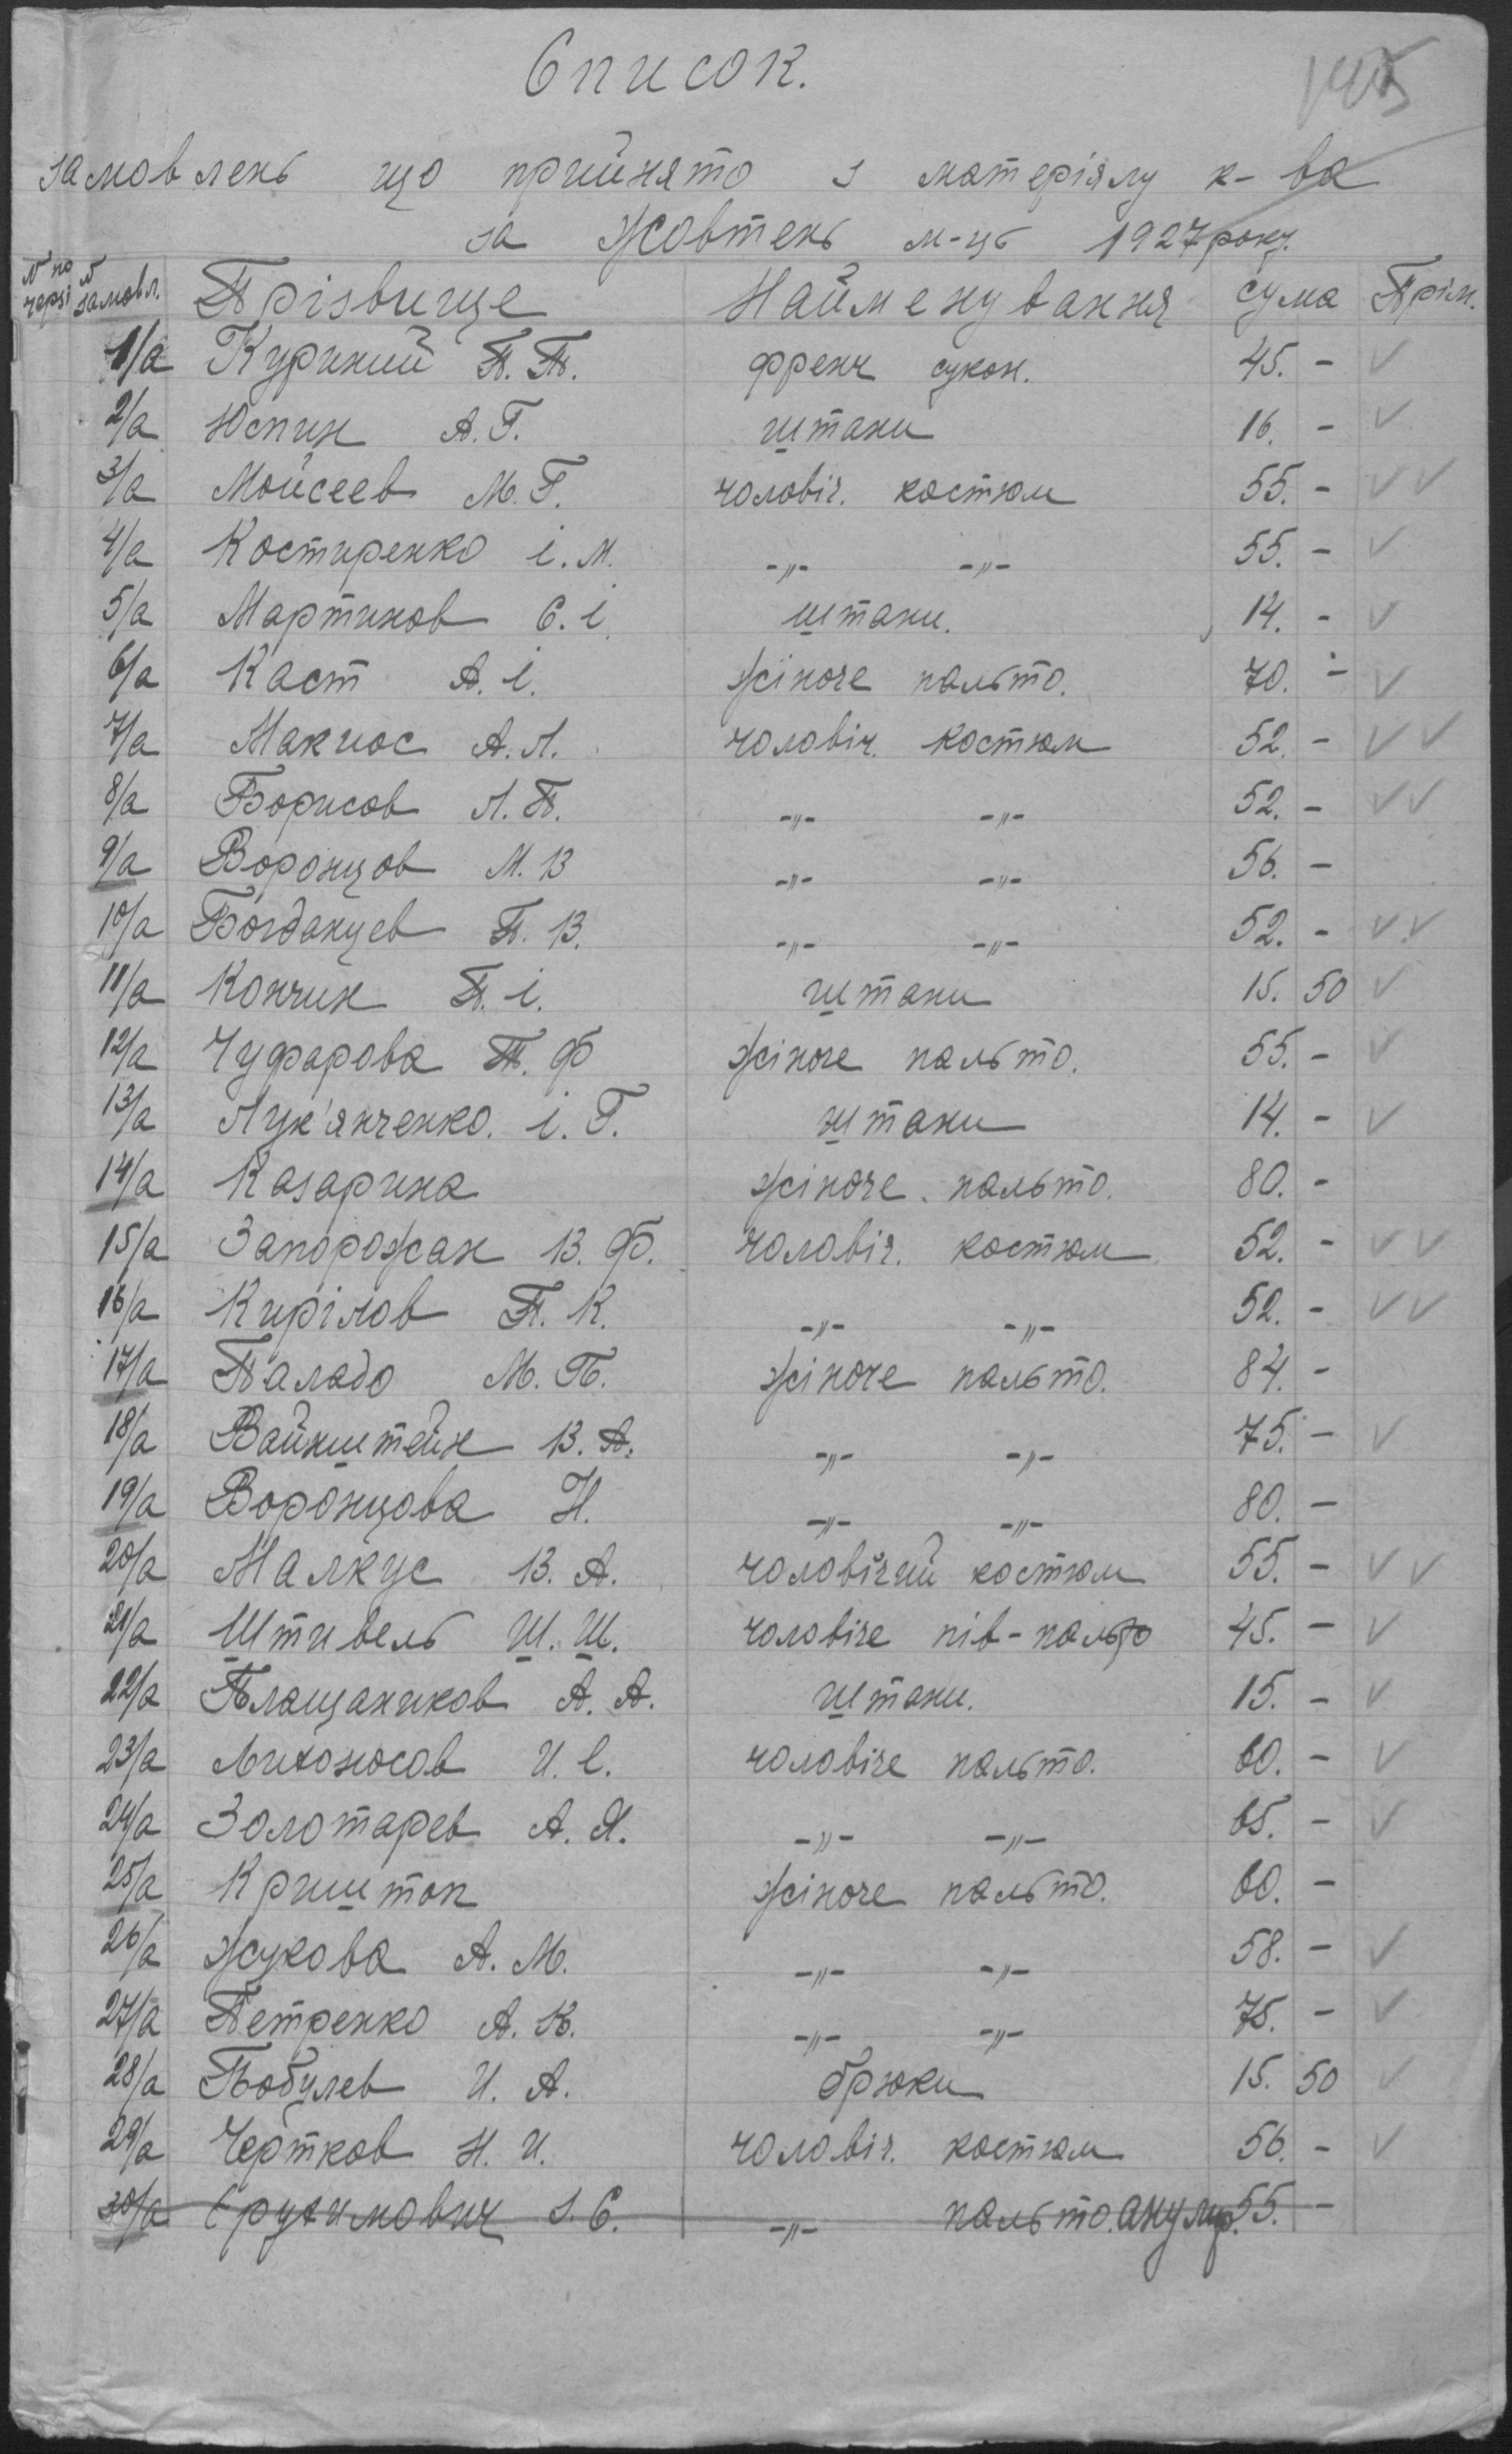 Список.
145
замовлень що прийнято з матеріялу к-ва
за жовтень м-ць 1927 року.
№ по черзі № замовл. Прізвище Найменування сума Прім.
1/а Куриний П. П. френч сукон. 45. - ✓
2/а Юспин А. Г. штани 16. - ✓
3/а Мойсеев М. Г. чоловіч. костюм 55. - ✓✓
4/а Костиренко і. м. -„- -„- 55. - ✓
5/а Мартинов С. і. штани. 14. - ✓
6/а Каст А. і. жіноче пальто. 70. - ✓
7/а Макиос А. Л. чоловіч. костюм 52. - ✓✓
8/а Борисов Л. П. -„- -„- 52. - ✓✓
9/а Воронцов М. В -„- -„- 56. -
10/а Богданцев П. В. -„- -„- 52. - ✓✓
11/а Кончин П. і. штани 15. 50 ✓
12/а Чуфарова Т. Ф жіноче пальто. 55. - ✓
13/а Лук'янченко. і. Г. штани 14. - ✓
14/а Казарина жіноче пальто. 80. -
15/а Запорожан В. Ф. чоловіч. костюм 52. - ✓✓
16/а Кирілов П. К. -„- -„- 52. - ✓✓
17/а Паладо М. П. жіноче пальто. 84. -
18/а Вайнштейн В. А. -„- -„- 75. - ✓
19/а Воронцова Н. -„- -„- 80. -
20/а Малкус В. А. чоловічий костюм 55. - ✓✓
21/а Штивель Ш. Ш. чоловіче пів-пальто 45. - ✓
22/а Плащаников А. А. штани. 15. - ✓
23/а Лихоносов И. Е. чоловіче пальто. 60. - ✓
24/а Золотарев А. Я. -„- -„- 65. - ✓
25/а Криштоп жіноче пальто. 60. -
26/а Жукова А. М. -„- -„- 58. - ✓
27/а Петренко А. К. -„- -„- 75. - ✓
28/а Бобулев И. А. брюки 15. 50 ✓
29/а Чертков Н. И. чоловіч. костюм 56. - ✓
30/а С. -„- пальто. анулир. 55. -